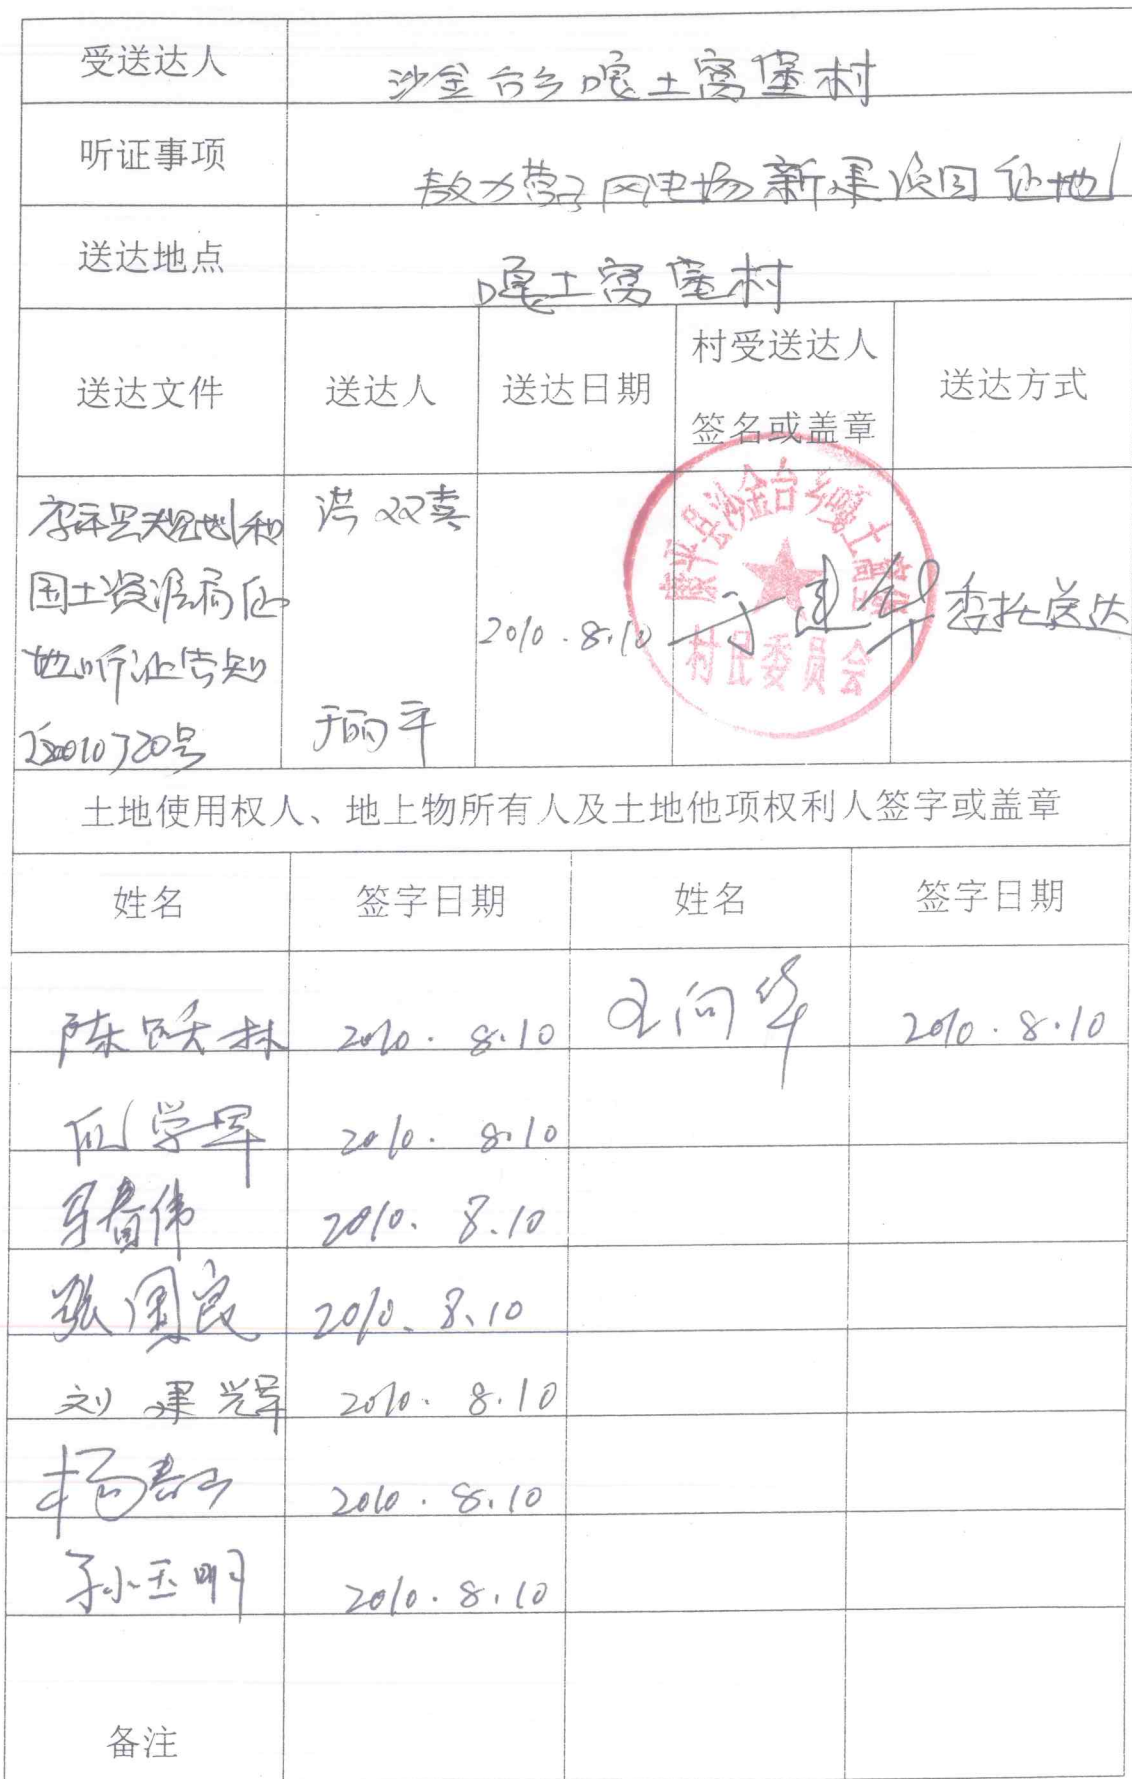 受送达人 沙金台乡嘎土窝堡村
听证事项 敖力营子风电场新建项目征地
送达地点 嘎土窝堡村
送达文件 送达人 送达日期 村受送达人签名或盖章 送达方式
康平县规划和 洪双喜
国土资源局征
2010.8.10 于建华 委托送达
地听证告知
[2010]20号 于丽平
康平县沙金台乡嘎土窝堡
村民委员会
土地使用权人、地上物所有人及土地他项权利人签字或盖章
姓名 签字日期 姓名 签字日期
陈跃林 2010.8.10 王向华 2010.8.10
学军 2010.8.10
马春伟 2010.8.10
张国良 2010.8.10
刘建辉 2010.8.10
杨春山 2010.8.10
孙玉明 2010.8.10
备注